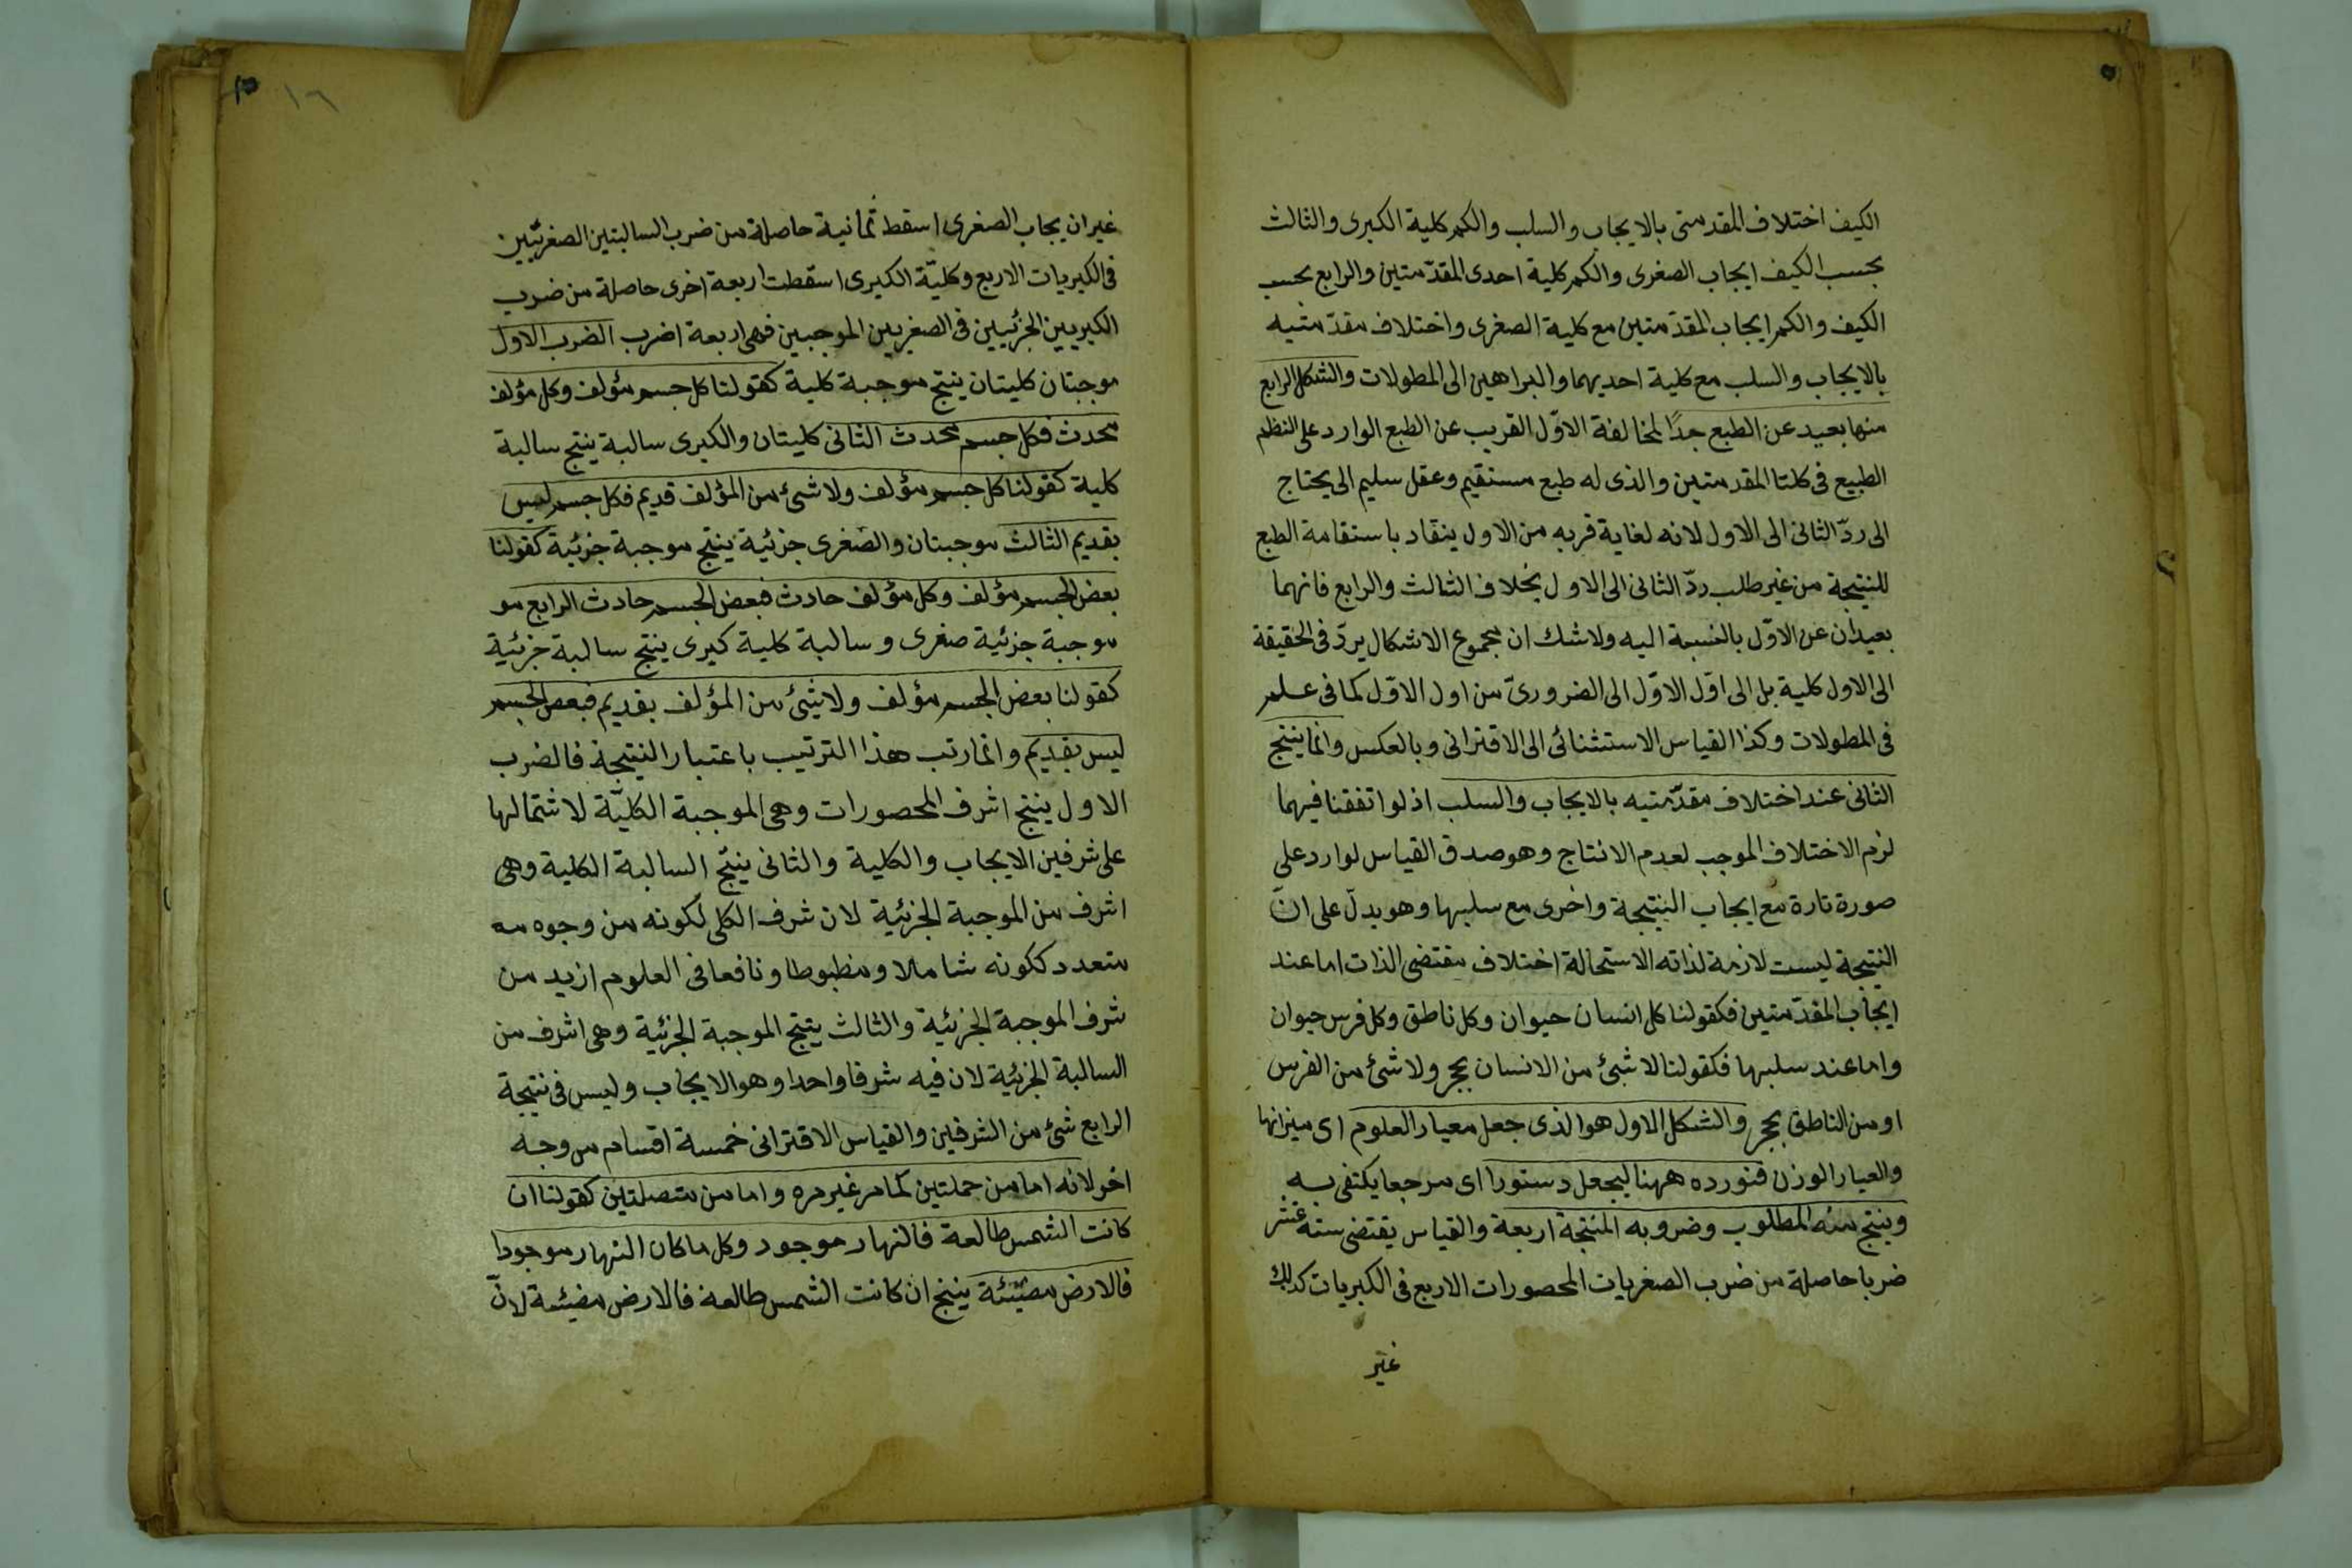 الكيف اختلاف المقدمتى بالايجاب والسلب والكم كلية الكبرى والثالث
بحسب الكيف ايجاب الصغرى والكم كلية احدى المقدّمتين والرابع بحسب
الكيف والكم ايجاب المقدّمتين مع كلية الصغرى واختلاف مقدّمتيه
بالايجاب والسلب مع كلية احديهما والبراهين الى المطولات والشكل الرابع
منها بعيد عن الطبع جدًا لمخالفة الاوّل القريب عن الطبع الوارد على النظم
الطبيع فى كلتا المقدمتين والذى له طبع مستقيم وعقل سليم الى يحتاج
الى ردّ الثانى الى الاول لانه لغاية قربه من الاول ينقاد باستقامة الطبع
للنتيجة من غير طلب ردّ الثانى الى الاول بخلاف الثالث والرابع فانهما
بعيدان عن الاوّل بالنسبة اليه ولاشك ان مجموع الاشكال يردّ فى الحقيقة
الى الاول كلية بل الى اوّل الاوّل الى الضرورىّ من اول الاوّل كما فى علم
فى المطولات وكذا القياس الاستثنائى الى الاقترانى وبالعكس وانما ينتج
الثانى عند اختلاف مقدّمتيه بالايجاب والسلب اذ لو اتفقنا فيهما
لزم الاختلاف الموجب لعدم الانتاج وهو صدق القياس لوارد على
صورة تارة مع ايجاب النتيجة واخرى مع سلبها وهو يدلّ على انّ
النتيجة ليست لازمة لذاته الاستحالة اختلاف مقتضى الذات اما عند
ايجاب المقدّمتين فكقولنا كل انسان حيوان وكل ناطق وكل فرس حيوان
واما عند سلبها فكقولنا لا شئ من الانسان بحجر ولا شئ من الفرس
او من الناطق بحجر والشكل الاول هو الذى جعل معيار العلوم اى ميزانها
والعيار الوزن فنورده ههنا ليجعل دستورا اى مرجعا يكتفى به
وينتج منه المطلوب وضروبه المنتجة اربعة والقياس يقتضى سته عشر
ضربا حاصلة من ضرب الصغريات المحصورات الاربع فى الكبريات كذلك
غير
١٦
غير ان يجاب الصغرى اسقط ثمانية حاصلة من ضرب السالبتين الصغريّين
فى الكبريات الاربع وكليّة الكبرى اسقطت اربعة اخرى حاصلة من ضرب
الكبريين الجزئيين فى الصغريين الموجبين فهى اربعة اضرب الضرب الاول
موجبتان كليتان ينتج موجبة كلية كقولنا كل جسم مؤلف وكل مؤلف
محدث فكل جسم محدث الثانى كليتان والكبرى سالبة ينتج سالبة
كلية كقولنا كل جسم مؤلف ولا شئ من المؤلف قديم فكل جسم ليس
بقديم الثالث موجبتان والصغرى جزئية ينتج موجبة جزئية كقولنا
بعض الجسم مؤلف وكل مؤلف حادث فبعض الجسم حادث الرابع مو
موجبة جزئية صغرى وسالبة كلية كبرى ينتج سالبة جزئية
كقولنا بعض الجسم مؤلف ولا شئ من المؤلف بقديم فبعض الجسم
ليس بقديم وانما رتب هذا الترتيب باعتبار النتيجة فالضرب
الاول ينتج اشرف المحصورات وهى الموجبة الكليّة لاشتمالها
على شرفين الايجاب والكلية والثانى ينتج السالبة الكلية وهى
اشرف من الموجبة الجزئية لان شرف الكلى لكونه من وجوه مه
متعدد ككونه شاملا ومظبوطا ونافعا فى العلوم ازيد من
شرف الموجبة الجزئية والثالث ينتج الموجبة الجزئية وهى اشرف من
السالبة الجزئية لان فيه شرفا واحدا وهو الايجاب وليس فى نتيجة
الرابع شئ من الشرفين والقياس الاقترانى خمسة اقسام من وجه
اخر لانه اما من حملتين كما مر غير مره واما من متصلتين كقولنا ان
كانت الشمس طالعة فالنهار موجود وكل ما كان النهار موجودا
فالارض مضيئة ينتج ان كانت الشمس طالعة فالارض مضيئة لانّ